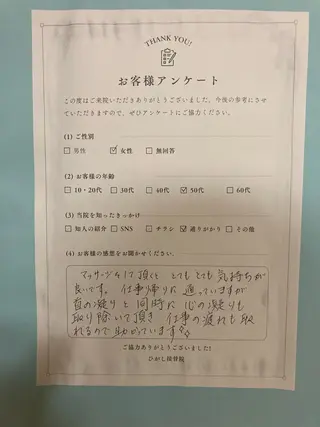 THANK YOU!
お客様アンケート
この度はご来院いただきありがとうございました。今後の参考にさせ
ていただきますので、ぜひアンケートにご協力ください。
(1) ご性別
□ 男性 ☑ 女性 □ 無回答
(2) お客様の年齢
□ 10・20代 □ 30代 □ 40代 ☑ 50代 □ 60代
(3) 当院を知ったきっかけ
□ 知人の紹介 □ SNS □ チラシ ☑ 通りがかり □ その他
(4) お客様の感想をお聞かせください。
マッサージして頂くと とてもとても気持ちが
良いです。仕事帰りに通っていますが
首の凝りと同時に心の凝りも
取り除いて頂き 仕事の疲れも取
れるので助かっています☆
ご協力ありがとうございました!
ひがし接骨院